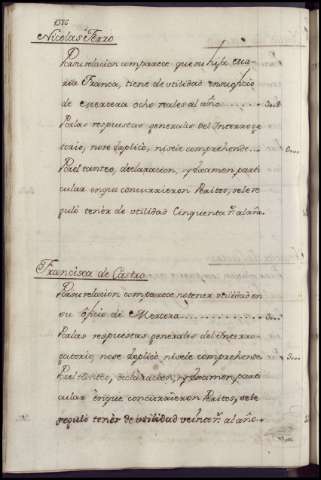 Nicolas Ferro
Por su relacion comparece que su hija
Franca, tiene de utilidad en su oficio
de ocho reales al año
Por las respuestas generales del Interroga
torio, no se deplicó, ni se le comprehende
Por el tanteo, declaracion, y dictamen parti
cular en que concurrieron Peritos, se le re
guló tener de utilidad Cinquenta rs. al año.
Francisca de Castro
Por su relacion comparece no tener utilidad en
su oficio de Mercera
Por las respuestas generales del Interro
gatorio, no se deplicó, ni se le comprehende
Por el tanteo, declaracion, y dictamen parti
cular en que concurrieron Peritos, se le
reguló tener de utilidad veinte rs. al año